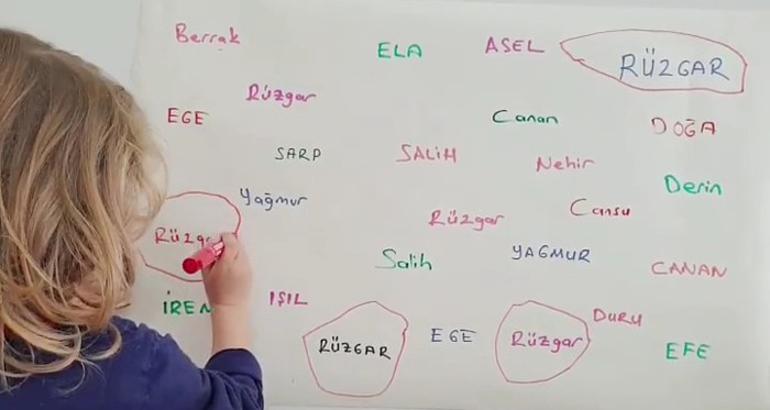 Berrak
ELA
ASEL
RÜZGAR
Rüzgar
EGE
Canan
DOĞA
SARP
SALİH
Nehir
Derin
Yağmur
Cansu
Rüzgar
Salih
YAGMUR
CANAN
IŞIL
RÜZGAR
EGE
Rüzgar
DURU
EFE